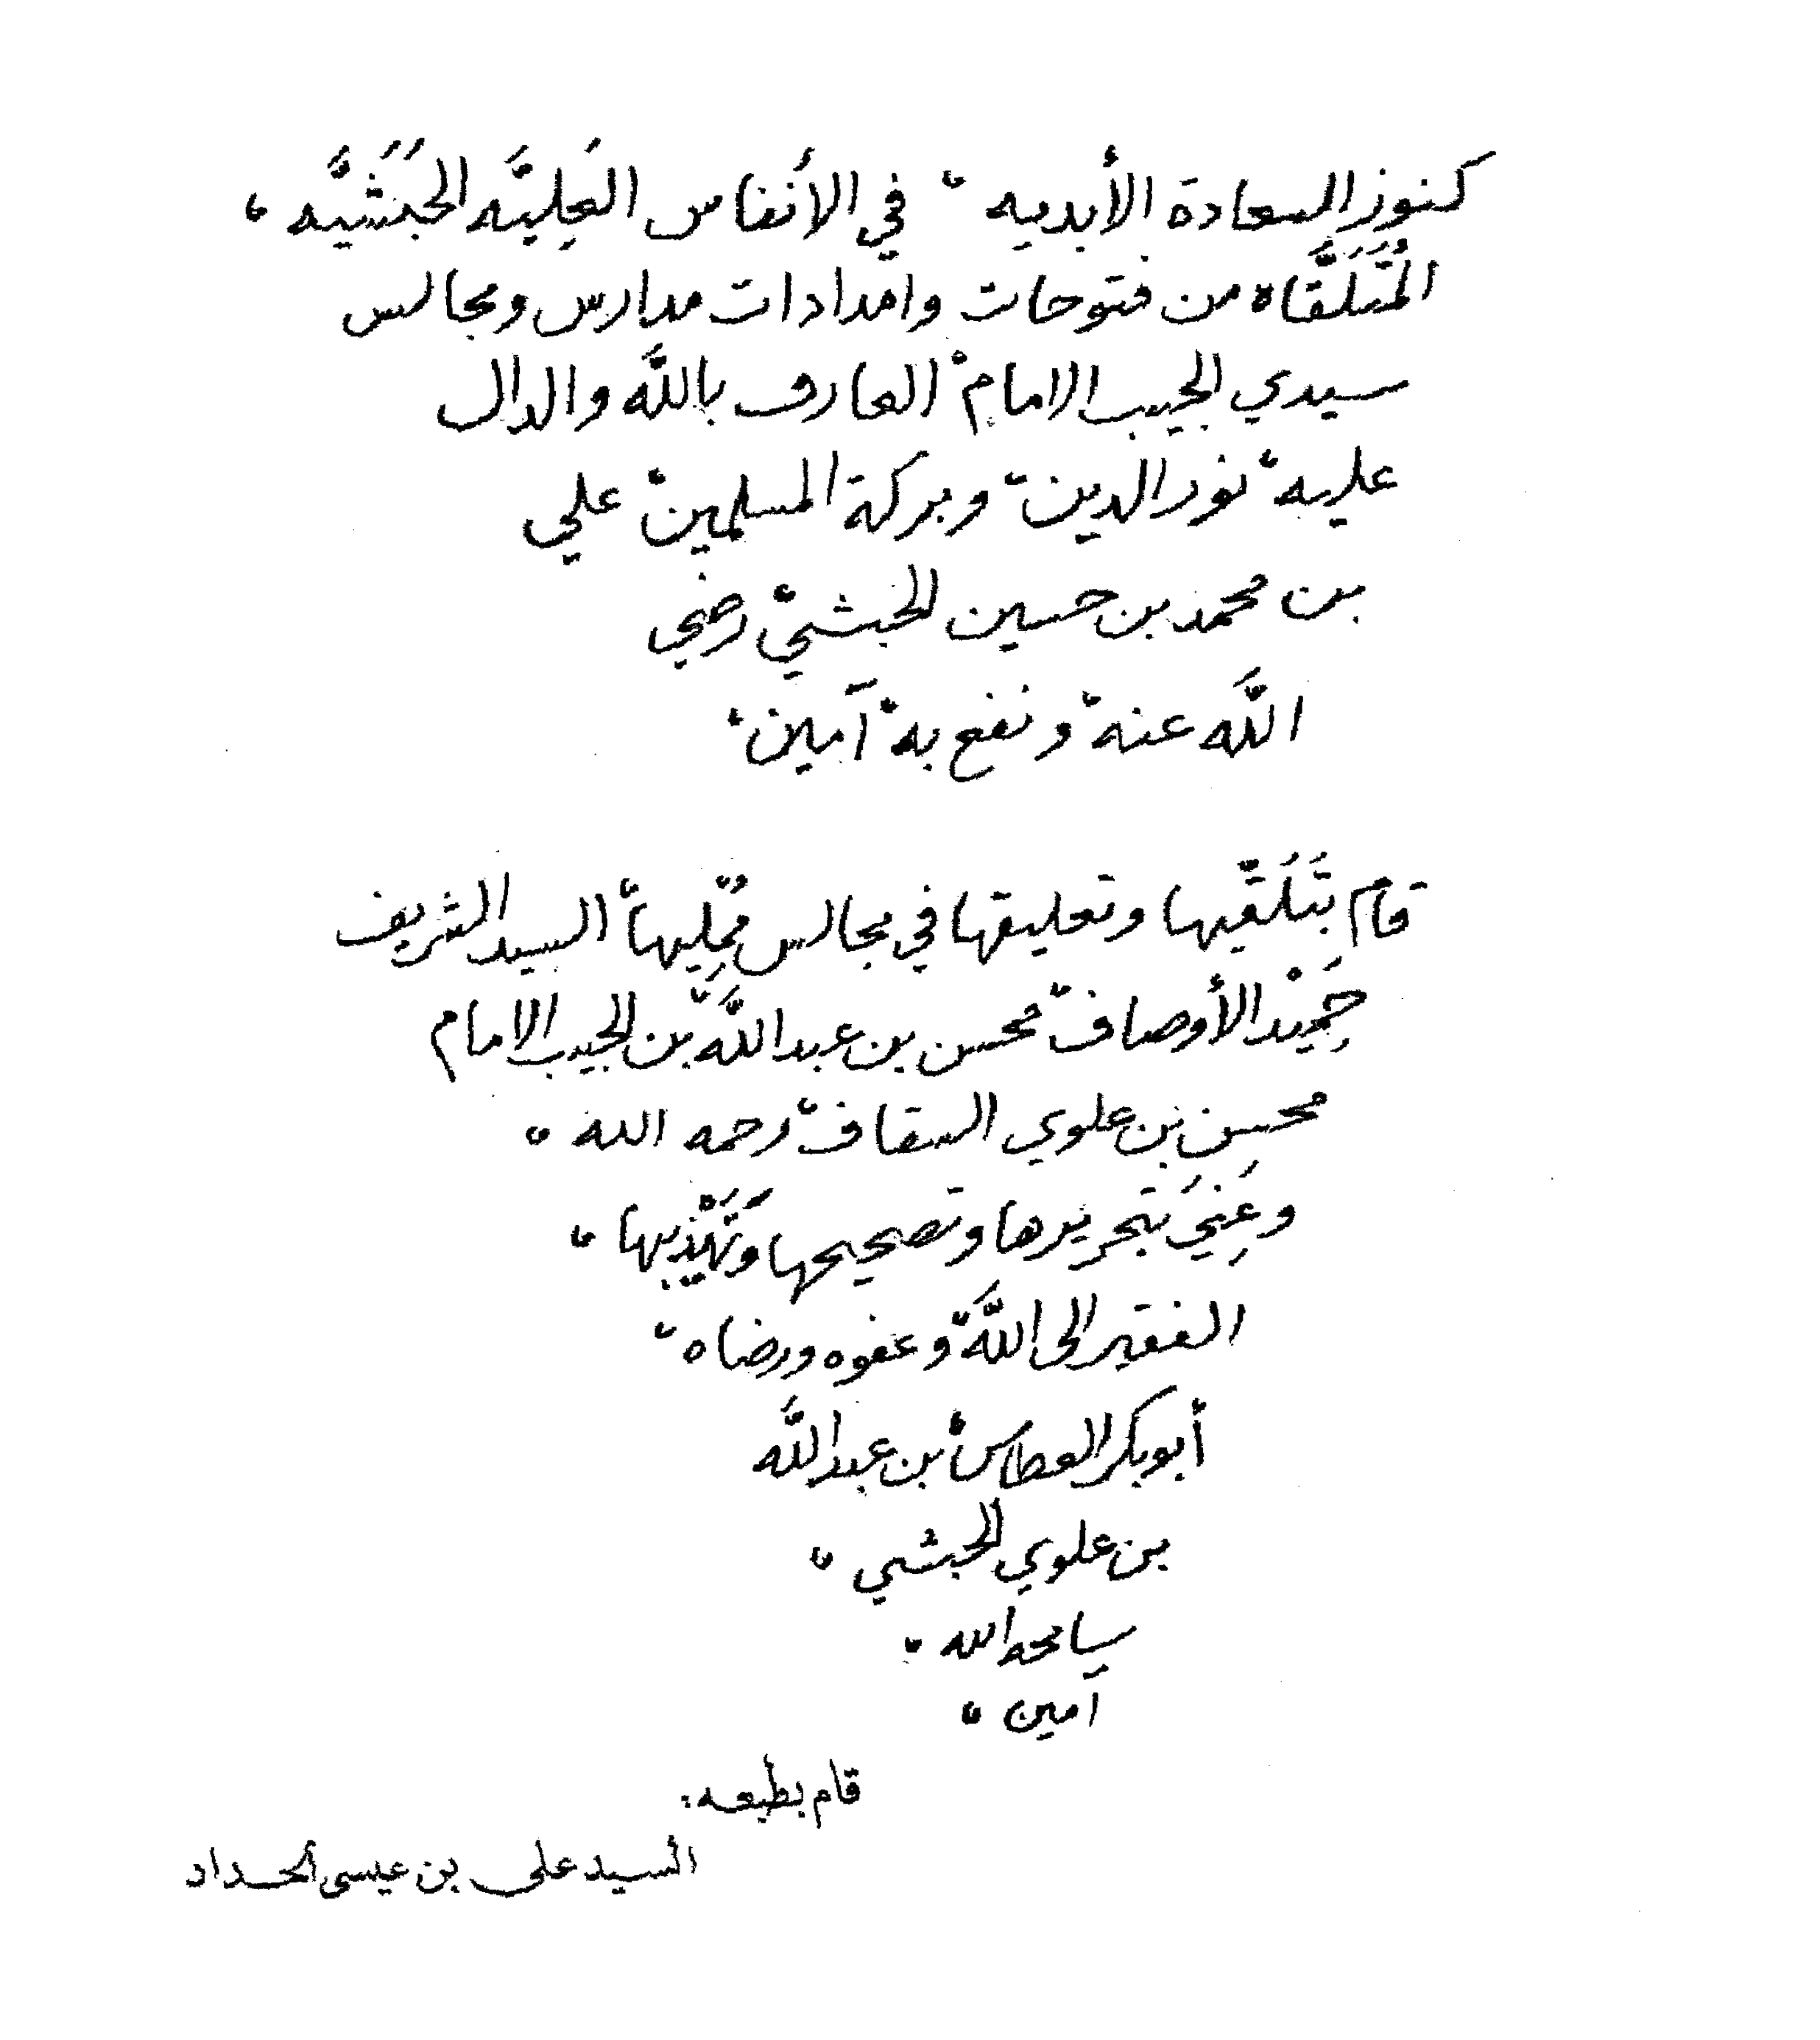 كنوز السعادة الأبديه، في الأنفاس العَلِيَّه الحَبَشِيَّه،
المُتَلَقَّاه من فتوحات وامدادات مدارس ومجالس
سيدي الحبيب الامام، العارف باللَّه والدال
عليه، نور الدين، وبركة المسلمين، علي
بن محمد بن حسين الحبشي، رضي
اللَّه عنه، ونفع به، آمين،
قام بتَلَقِّيها وتعليقها في مجالس مُمْلِيها، السيد الشريف
حَمِيْد الأوصاف، محسن بن عبد اللَّه، بن الحبيب الامام
محسن بن علوي السقاف، رحمه الله،
وعُنِيَ بتحريرها وتصحيحها وتَهْذيبها،
الفقير الى اللَّه، وعفوه ورضاه،
أبوبكر العطاس، بن عبد اللَّه
بن علوي الحبشي،
سامحه الله،
آمين،
قام بطبعه:
السيد على بن عيسى الحداد